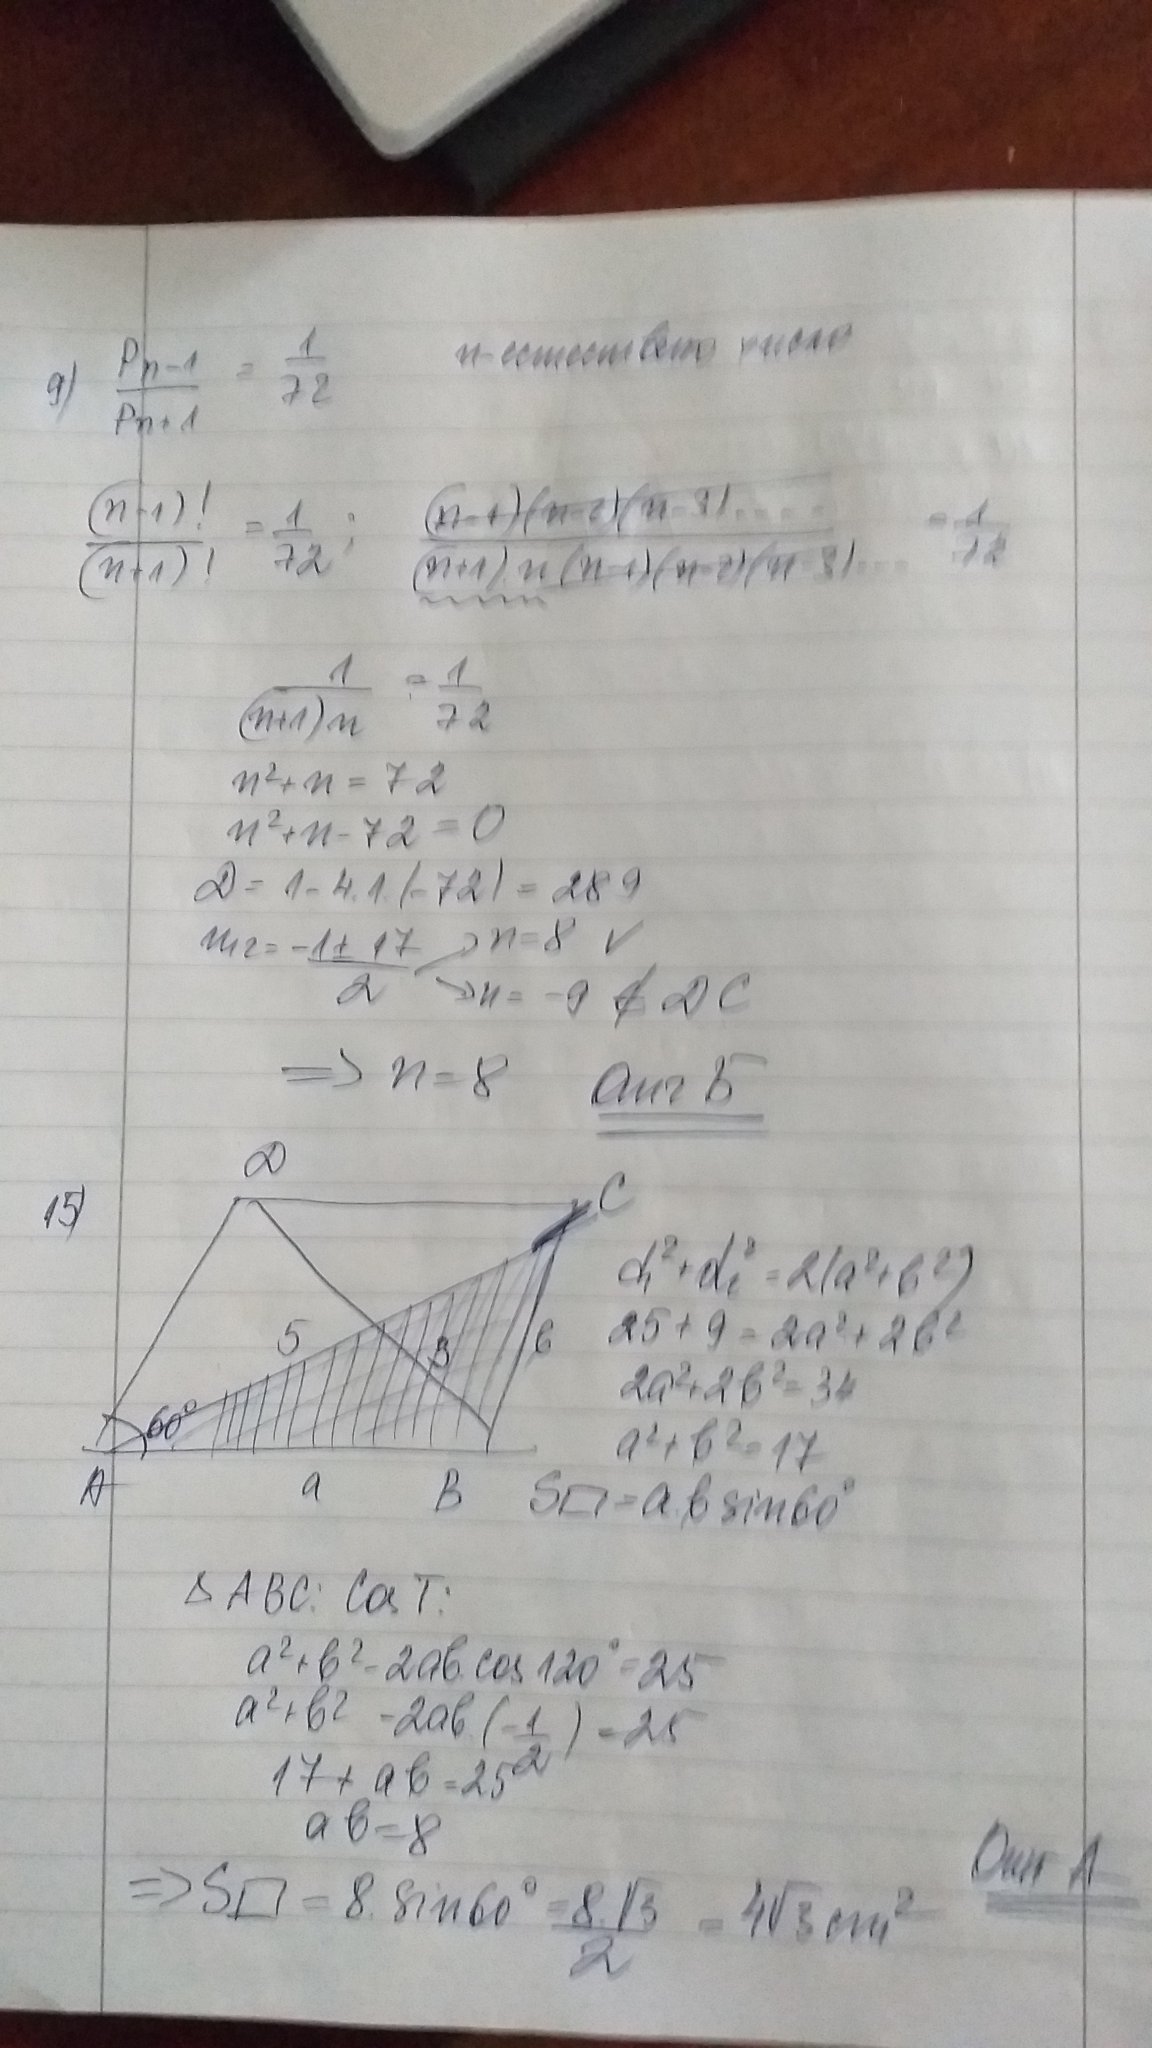 9) Pn-1/Pn+1 = 1/72 n-естествено число
(n-1)!/(n+1)! = 1/72 ; (n-1)(n-2)(n-3)..../(n+1).n(n-1)(n-2)(n-3)... = 1/72
1/(n+1)n = 1/72
n²+n=72
n²+n-72=0
D= 1-4.1.(-72)=289
n12= -1±17/2 → n=8 ✓
→ n= -9 ∉ DC
=> n=8 Отг Б
D
15) C
d1²+d2²=2(a²+b²)
5 3 b 25+9=2a²+2b²
2a²+2b²=34
60° a²+b²=17
A a B S▱=a.b sin60°
∆ABC: Cos T:
a²+b²-2ab.cos120°=25
a²+b² -2ab.(-1/2)=25
17+ab=25
ab=8
=> S▱ = 8.sin60° = 8.√3/2 = 4√3cm² Отг А